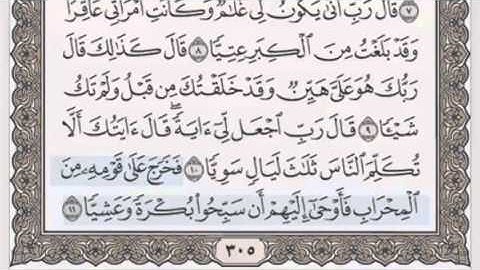 ٧ قَالَ رَبِّ أَنَّىٰ يَكُونُ لِى غُلَـٰمٌ وَكَانَتِ ٱمْرَأَتِى عَاقِرًا
وَقَدْ بَلَغْتُ مِنَ ٱلْكِبَرِ عِتِيًّا ٨ قَالَ كَذَٰلِكَ قَالَ
رَبُّكَ هُوَ عَلَىَّ هَيِّنٌ وَقَدْ خَلَقْتُكَ مِن قَبْلُ وَلَمْ تَكُ
شَيْـًٔا ٩ قَالَ رَبِّ ٱجْعَل لِّىٓ ءَايَةً ۚ قَالَ ءَايَتُكَ أَلَّا
تُكَلِّمَ ٱلنَّاسَ ثَلَـٰثَ لَيَالٍ سَوِيًّا ١٠ فَخَرَجَ عَلَىٰ قَوْمِهِۦ مِنَ
ٱلْمِحْرَابِ فَأَوْحَىٰٓ إِلَيْهِمْ أَن سَبِّحُوا۟ بُكْرَةً وَعَشِيًّا ١١
٣٠٥